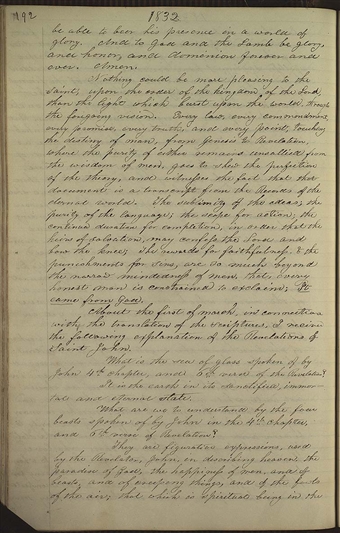 192
1832
be able to bear his presence in a world of
glory. And to God and the Lamb be glory,
and honor, and dominion forever and
ever. Amen.
Nothing could be more pleasing to the
Saint, upon the order of the kingdom of the Lord,
than the light which burst upon the world, through
the foregoing vision. Every law, every commandment,
every promise, every truth, and every point, touching
the destiny of man, from Genesis to Revelation,
where the purity of either remains unsullied from
the wisdom of men, goes to show the perfection
of the theory, and witnesses the fact that that
document is a transcript from the Records of the
eternal world. The sublimity of the ideas; the
purity of the language; the scope for action; the
continued duration for completion, in order that the
heirs of salvation, may confess the Lord and
bow the knee; The rewards for faithfulness, & the
punishments for sins, are so much beyond
the narrow mindedness of men, that every
honest man is constrained to exclaim; It
came from God.
About the first of March, in connection
with the translation of the scriptures, I received
the following explanation of the Revelations of
Saint John.
What is the sea of glass spoken of by
John 4th chapter, and 6th verse of the Revelation?
It is the earth in its sanctified, immor-
tal and eternal state.
What are we to understand by the four
beasts spoken of by John in the 4th chapter,
and 6th verse of Revelation?
They are figurative expressions, used
by the Revelator, John, in describing heaven, the
paradise of God, the happiness of man, and of
beasts, and of creeping things, and of the fowls
of the air; that which is spiritual being in the